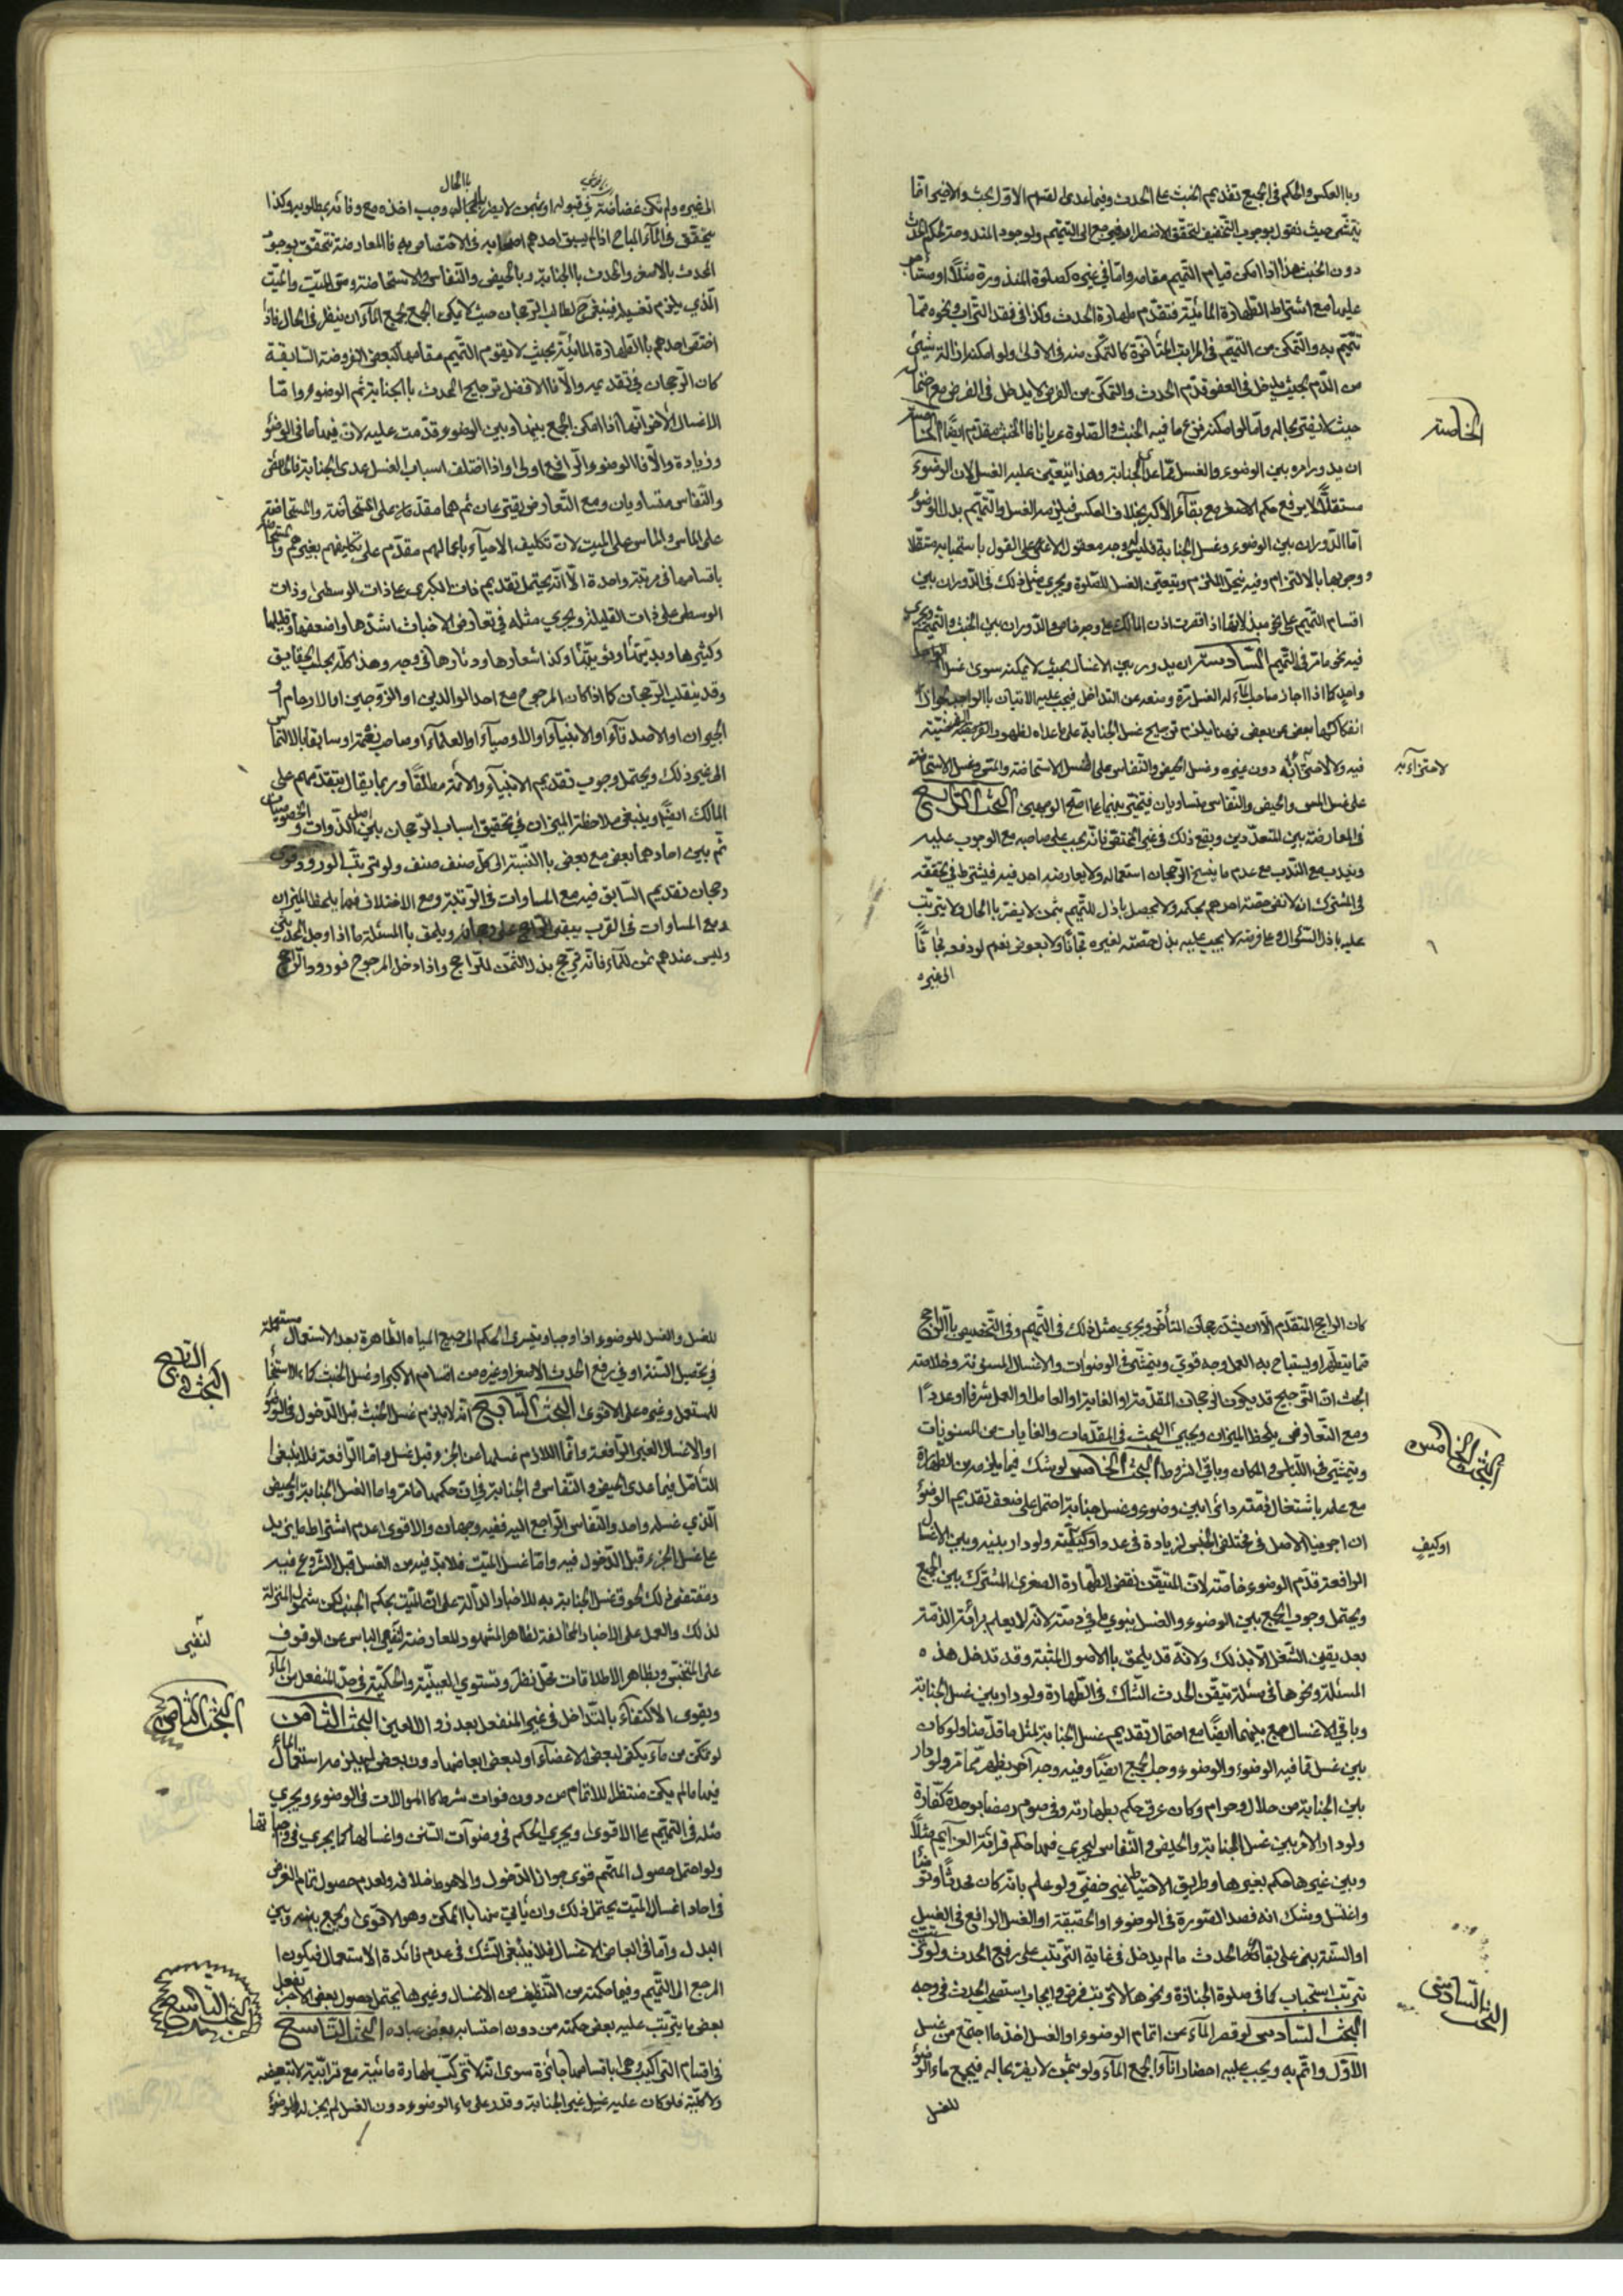 وبالعكس والحكم في الجميع تقديم الخبث على الحدث وفيما عدى القسم الاول بحث والاخير امّا
يتمشّى حيث نقول بوجوب التخفيف لتحقق الاضطرار فيرجع الى التيمّم ولوجود المندوحة لحكم الحدث
دون الخبث هذا اذا امكن قيام التيمم مقامه وامّا في غيره كصلوة المنذورة مثلاً او مستأجر
عليها مع اشتراط الطهارة المائية فتقدّم طهارة الحدث وكذا في فقد التراب ونحوه ممّا
يتيمّم به والتمكن من التيمّم في المراتب المتأخرة كالتمكّن منه في الاولى ولو امكنه ازالة شيء
من الدّم بحيث يدخل في العفو قدّم الحدث والتمكّن من القرض لا يدخل في الفرض مع اضمار
حيث لا يفتى بحاله وامّا لو امكنه نزع ما فيه الخبث والصلوة عريانا فالخبث مقدّم ايضًا الخامسة
الخامسة
ان يدور امره بين الوضوء والغسل ممّا عدا الجنابة وهذا يتعيّن عليه الغسل لان الوضوء
مستقلاً لا يرفع حكم الاصغر مع بقاء الاكبر بخلاف العكس فيلزمه الغسل والتيمّم بدل الوضوء
امّا الدّوران بين الوضوء وغسل الجنابة فليس له وجه معقول الا على القول باستحبابه مستقلا
ووجوبها بالالتزام وفيه يتّجه اللزوم ويتعيّن الغسل للصّلوة ويجري مثل ذلك في الدّوران بين
اقسام التيمّم على نحو مبدلاتها اذا اقصرت اذن المالك على وجه خاص والدّوران بين الخبث والتيمّم ويجري
فيه نحو ما مرّ في التيمّم السّادسة ان يدور بين الاغسال بحيث لا يمكنه سوى غسل الواحد
واحد كما اذا اجاز صاحب الماء له الغسل مرّة ومنعه عن التداخل فيجب عليه الاتيان بالواحد لجواز
انفكاكها بعض عن بعض وهنا يلزم ترجيح غسل الجنابة على ما عداه لظهور الفرضيّة
فيه ولاجتزائه دون غيره وغسل الحيض والنّفاس على غسل الاستحاضة والمتى وغسل الاستحاضة
لاجتزآءبه
على غسل المس والحيض والنّفاس متساويان فيتخيّر بينهما على اصّح الوجهين البحث الرّابع
في المعارضة بين المتعدّدين ويقع ذلك في غير المختصّ فانّه يجب على صاحبه مع الوجوب عليه
ويندب مع النّدب مع عدم ما ينسخ الرّجحان استعماله ولا يعارضه احد فيه فيشترط في تحققه
في المشترك ان لا تفي حصّة احدهم بحكمه ولا يحصل باذل للتتميم بثمن لا يضرّ بالحال ولا يترتّب
عليه باذل السّئوال وعلى فرضه لا يجب عليه بذل حصّته لغيره مجّانًا ولا بعوض نعم لو دفعه مجّانًا
الى غيره
الى غيره ولم تكن غضاضة في قبوله او بثمن لا يضرّ بالحال وجب اخذه مع وفائه بمطلوبه وكذا
بالحال
يتحقّق في الماء المباح اذا لم يسبق احدهم اصحابه في الاختصاص به فالمعارضة تتحقّق بوجود
الحدث بالاصغر والحدث بالجنابة وبالحيض والنّفاس والاستحاضة ومسّ الميّت والميّت
الّذي يلزم تغسيله فينبغي ح لطالب الرّجحان حيث لا يمكن الجمع بجمع الماء ان ينظر في الحال فاذا
اختصّ احدهم بالطهارة المائيّة بحيث لا يقوم التيمّم مقامها كبعض الفروض السّابقة
كان الرّجحان في تقديمه والّا فالافضل ترجيح المحدث بالجنابة ثم الوضوء وامّا
الاغسال الأخر فانّها اذا امكن الجمع بينها وبين الوضوء قدّمت عليه لانّ فيها ما في الوضوء
وزيادة والّا فالوضوء الرّافع اولى واذا اختلف اسباب الغسل عدى الجنابة فالحيض
والنّفاس متساويان ومع التّعارض يقترعان ثم هما مقدّمان على المستحاضة والمستحاضة
على الماس والماس على الميت لان تكليف الاحياء باعمالهم مقدّم على تكليفهم بغيرهم والمستحاضة
باقسامها في مرتبة واحدة الّا انّه يحتمل تقديم ذات الكبرى على ذات الوسطى وذات
الوسطى على ذات القليلة ويجري مثله في تعارض الاخباث اشدّها واضعفها وقليلها
وكثيرها وبدنيّها وثوبيّها وكذا شعارها ودثارها في وجه وهذا كلّه بحسب الحقايق
وقد ينقلب الرّجحان كما اذا كان المرجوح مع احد الوالدين او الزّوجين او الارحام او
الجيران او الاصدقاء او الانبياء والاوصياء او العلماء او صاحب نعمة او سابقا بالالتماس
الى غير ذلك ويحتمل وجوب تقديم الانبياء والائمة مطلقًا وربما يقال بتقدّمهم على
المالك ايضًا وينبغي ملاحظة الميزان في تحقيق اسباب الرّجحان بين اصل الذّوات والخصوصيات
ثم بين احادهما بعض مع بعض بالنّسبة الى كلّ صنف صنف ولو ترتّب الورود قوى
رجحان تقديم السّابق فيه مع المساوات في الرّتبة ومع الاختلاف فيها يلحظ الميزان
ومع المساوات في القرب يبقى الرّاجح على رجحانه ويلحق بالمسئلة ما اذا وجد المحدثين
وليس عندهم ثمن للماء فانّه يرجح بذل الثمن للرّاجح واذا دخل المرجوح فورود الرّاجح
كان الراجح المتقدّم الّا ان يشتدّ رجحان المتأخّر ويجري مثل ذلك في التيمّم وفي التّخصيص بالرّاجح
فيما يتطهّر او يستباح به العمل وجه قوي ويتمشّى في الوضوآت والاغسال المسنونة وخلاصة
البحث انّ التّرجيح قد يكون لرجحان المقدّمة او الغاية او العامل او العمل شرفا او عددًا
ومع التّعارض يلحظ الميزان ويجيئ البحث في المقدّمات والغايات من المسنونات
ويتمشّى في اللّباس والمكان وباقي الشّروط البحث الخامس لو شك فيما يلزمه من الطهارة
البحث الخامس
مع علمه باشتغال ذمّته دائرا بين وضوء وغسل جنابة احتمل على ضعف تقديم الوضوء
ان اجرينا الاصل في مختلفي الجنس لزيادة في عدد او كيفيّة ولو دار بينه وبين الاغسال
او كيفٍ
الرافعة قدّم الوضوء خاصّة لانّ المتيقّن نقض الطّهارة الصغرى المشترك بين الجميع
ويحتمل وجوب الجمع بين الوضوء والغسل ينوي ما في ذمّته لانّه لا يعلم برائة الذمّة
بعد يقين الشّغل الّا بذلك ولانّه قد يلحق بالاصول المثبتة وقد تدخل هذه
المسئلة ونحوها في مسئلة متيقّن الحدث الشّاك في الطّهارة ولو دار بين غسل الجنابة
وباقي الاغسال جمع بينهما ايضًا مع احتمال تقديم غسل الجنابة لمثل ما قدّمنا ولو كان
بين غسل ممّا فيه الوضوء والوضوء وجب الجمع ايضًا وفيه وجه آخر يظهر ممّا مرّ ولو دار
بين الجنابة من حلال وحرام وكان عرق حكم بطهارته وفي صوم رمضان بوحدة كفّارة
ولو دار الامر بين غسل الجنابة والحيض والنّفاس ليجري فيها حكم قرائة العزآئم مثلاً
وبين غيرها حكم بغيرها وطريق الاحتياط غير خفيّ ولو علم بانّه كان محدثًا وتوضّأ
واغتسل وشك انه قصد الصّورة في الوضوء او الحقيقة او الغسل الرافع في الغسل
او السّنة بنى على بقائه الحدث ما لم يدخل في غاية التّرتّب على رفع الحدث ولو ترتبت
ترتّب استحباب كما في صلوة الجنازة ونحوها لا ترتّب فرض وايجاب استصحب الحدث في وجه
البحث السّادس لو قصر الماء عن اتمام الوضوء او الغسل اخذ ما اجتمع من غسل
البحث السّادس
الاوّل واتمّ به ويجب عليه احضار اناء لجمع الماء ولو بثمن لا يضرّ بحاله فيجمع ماء الوضوء
للغسل
للغسل والغسل للوضوء اذا وجبا ويسرى الحكم الى جميع المياه الطّاهرة بعد الاستعمال مستعملة
في تحصيل السّنة او في رفع الحدث الاصغر او غيره من اقسام الاكبر او غسل الخبث كماء الاستنجاء
للمستعمل وغيره على الاقوى البحث السّابع انّه لا يلزم غسل الخبث قبل الدّخول في الوضوء
البحث السّابع
او الاغسال الغير الرّافعة وانّما اللازم غسلها من الجزء قبل غسله وامّا الرّافعة فلا ينبغي
التأمّل فيما عدى الحيض والنّفاس والجنابة في انّ حكمها ما مرّ وامّا الغسل الجنابة والحيض
الّذي غسله واحد والنّفاس الرّاجع اليه ففيه وجهان والاقوى عدم اشتراط ما يزيد
على غسل الجزء قبل الدّخول فيه وامّا غسل الميّت فلا بدّ فيه من الغسل قبل الشّروع فيه
ومقتضى ذلك لحوق غسل الجنابة به للاخبار الدّالّة على انّ الميّت بحكم الجنب لكن شمول المنزلة
لذلك والعمل على الاخبار المخالفة لظاهر المشهور المعارضة لنفي الباس عن الوقوف
لنفي
على النّجس وبظاهر الاطلاقات محلّ نظر وتستوي العينيّة والحكميّة في صبّ المنفعل من الماء
ويقوى الاكتفاء بالتّداخل في غير المنفعل بعد زوال العين البحث الثامن
البحث الثامن
لو تمكّن من ماء يكفي لبعض الاعضاء او لبعض ابعاضها دون بعض لم يلزمه استعمال الماء
فيها ما لم يكن منتظرا للاتمام من دون فوات شرط كالموالات في الوضوء ويجري
مثله في التيمّم على الاقوى ويجري الحكم في وضوآت السّنن واغسالها كما يجري في واجباتها
ولو احتمل حصول المتمّم قوى جواز الدّخول والاحوط خلافه ولعدم حصول تمام الغرض
في احاد اغسال الميّت يحتمل ذلك وان يأتي منها بالممكن وهو الاقوى ويجمع بينه وبين
البدل وامّا في ابعاض الاغسال فلا ينبغي الشّك في عدم فائدة الاستعمال فيكون
المرجع الى التيمّم وفيما حكمته من التّنظيف من الاغسال وغيرها يحتمل حصول بعض الاجر بفعل
بعض ما يترتّب عليه بعض حكمته من دون احتسابه بعض عباده البحث التّاسع
البحث التّاسع
في اقسام التراكيب وهي باقسامها جائزة سوى انّه لا تتركّب طهارة مائيّة مع ترابيّة لا تبعيضه
ولا كليّة فلو كان عليه غسل غير الجنابة وقدر على ماء الوضوء دون الغسل لم يجز له الوضوء